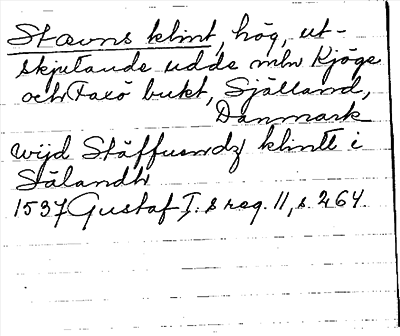 Stævns klint, hög, ut-
skjutande udde mln Kjöge
och Faxö bukt, Sjælland,
Danmark
wijd Stäffuendz klintt i
Sälandh
1537 Gustaf I:s reg. 11, s. 264.